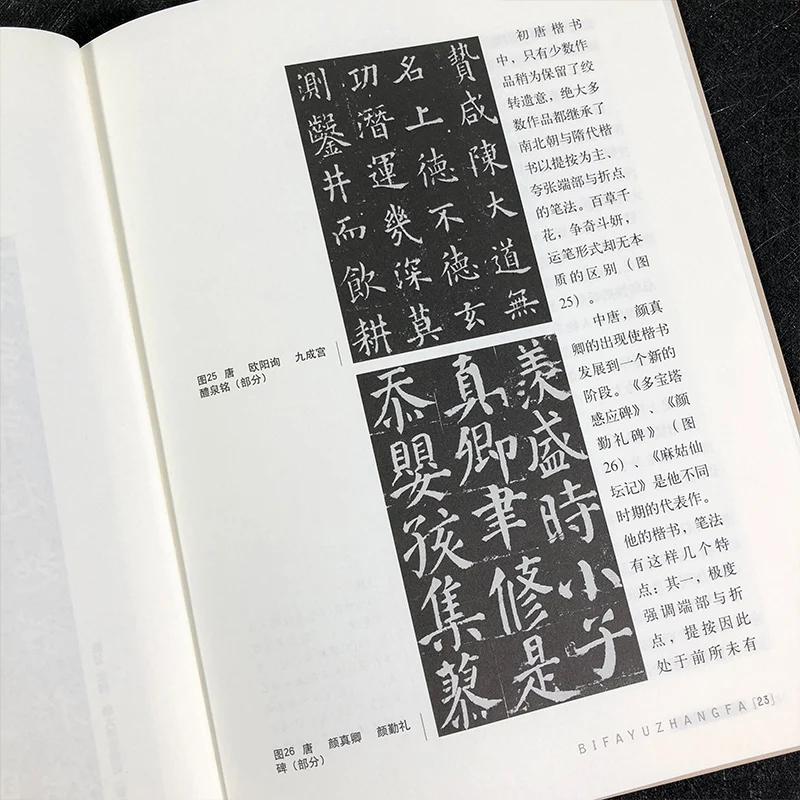 贄咸陳大道無
名上德不德玄
功潛運幾深莫
測鑿井而飲耕
图25 唐 欧阳询 九成宫
醴泉铭（部分）
羡盛時小子
真卿聿修是
忝嬰孩集蓼
图26 唐 颜真卿 颜勤礼
碑（部分）
初唐楷书
中，只有少数作
品稍为保留了绞
转遗意，绝大多
数作品都继承了
南北朝与隋代楷
书以提按为主、
夸张端部与折点
的笔法。百草千
花，争奇斗妍，
运笔形式却无本
质的区别（图
25）。
中唐，颜真
卿的出现使楷书
发展到一个新的
阶段。《多宝塔
感应碑》、《颜
勤礼碑》（图
26）、《麻姑仙
坛记》是他不同
时期的代表作。
他的楷书，笔法
有这样几个特
点：其一，极度
强调端部与折
点，提按因此
处于前所未有
BIFAYUZHANGFA [23]